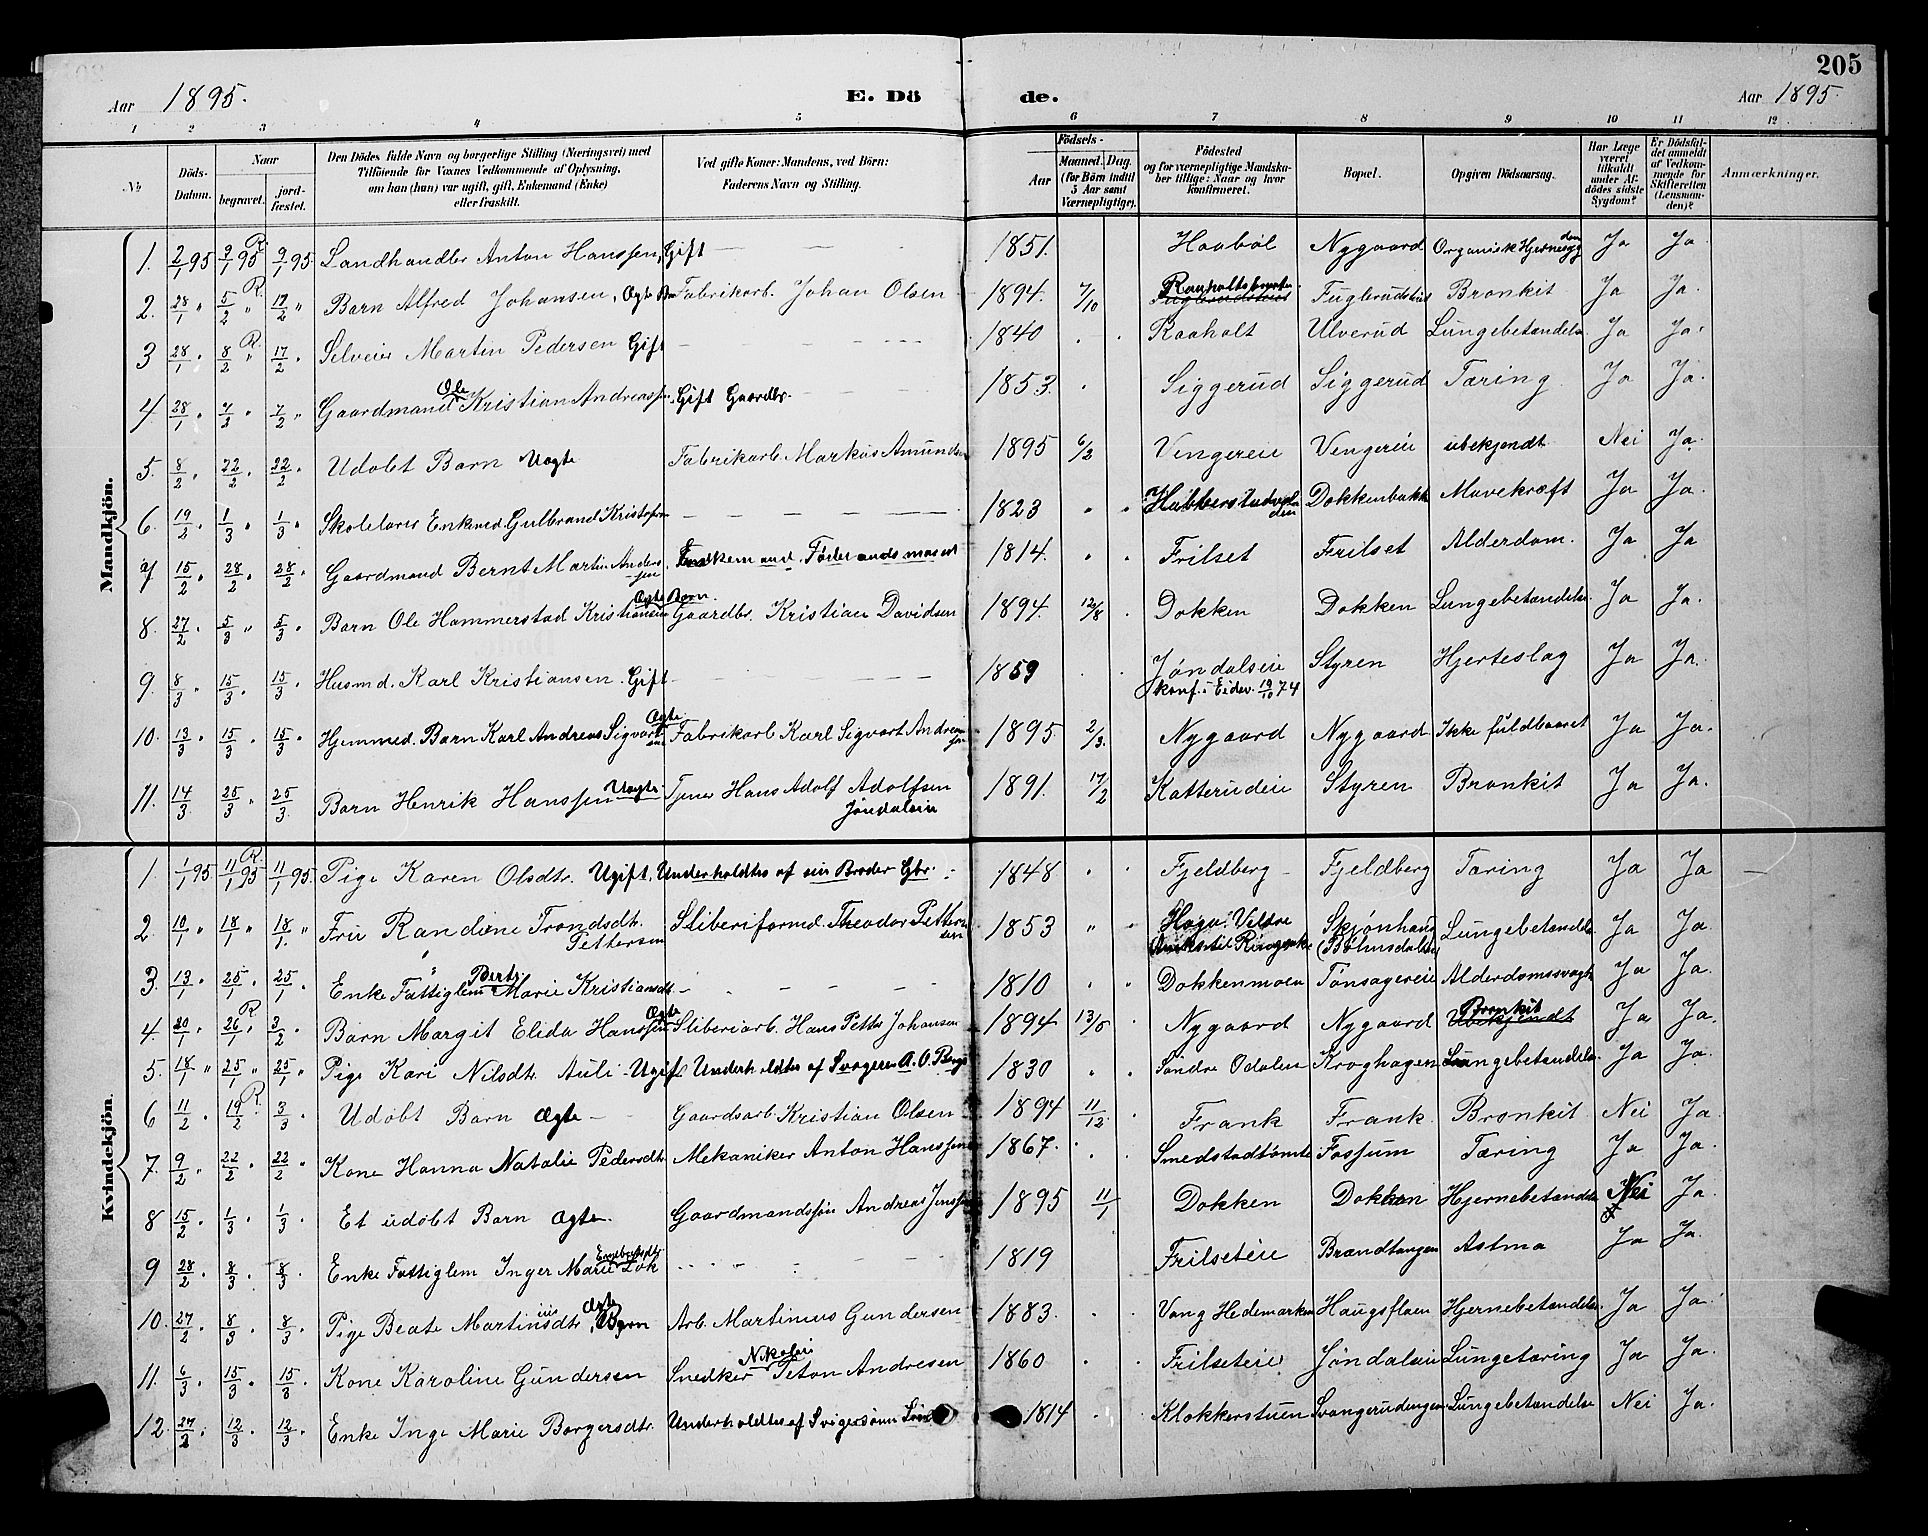 205
Aar 1895. E. Dö de. Aar 1895.
1 2 3 4 5 6 7 8 9 10 11 12
No
Döds-Datum.
Naar
begravet.
jord-fæstet.
Den Dödes fulde Navn og borgerlige Stilling (Næringsvei) med
Tilföiende for Voxnes Vedkommende af Oplysning,
om han (hun) var ugift, gift, Enkemand (Enke)
eller fraskilt.
Ved gifte Koner: Mandens, ved Börn:
Faderens Navn og Stilling.
Födsels-
Aar
Maaned. Dag.
(for Börn indtil
5 Aar samt
Værnepligtige).
Födested
og for værnepligtige Mandska-
ber tillige: Naar og hvor
konfirmeret.
Bopæl.
Opgiven Dödsaarsag.
Har Læge
været
tilkaldt
under Af-
dödes sidste
Sygdom?
Er Dödsfal-
det anmeldt
af Vedkom-
mende for
Skifteretten
(Lensman-
den)?
Anmærkninger.
Mandkjön.
1. 2/1 95 9/1 95 R. 9/1 95. Landhandler Anton Hanssen, Gift — — - 1851. Haabøl Nygaard Organisk Hjernesygdom Ja Ja
2. 28/1 " 5/2 " R. 17/2 " Barn Alfred Johansen, Ægte Fabrikarb. Johan Olsen 1894. 7/10 Fuglerudstus Bronkit Ja Ja.
3 28/1 " 8/2 " R. 17/2 " Selveier Martin Pedersen Gift — — — 1840 Raaholt Ulverud Lungebetændelse Ja Ja.
4 28/1 " 7/3 " 7/2 " Gaardmand Ole Kristian Andreassen Gift Gaardbr. 1853. Siggerud Siggerud Tæring. Ja Ja.
5. 8/2 " 22/2 " 22/2 " Udøbt Barn Uægte Fabrikarb. Markus Amundsen 1895 6/2 Vengereie Vengereie ubekjendt Nei Ja.
6. 19/2 " 1/3 " 1/3 " Skolelærer Enkemd. Gulbrand Kristofersen — — — 1823 Dokkenbakk Mavekræft Ja Ja.
7 15/2 " 28/2 " 28/2 " Gaardmand Bernt Martin Anderssen Enkemand. Føderaadsmand 1814. Frilset Frilset Alderdom. Ja Ja
8. 27/2 " 5/3 " 5/3 " Barn Ole Hammerstad Kristiansen Ægte Barn. Gaardbr. Kristian Davidsen 1894. 12/8 Dokken Dokken Lungebetændelse. Ja Ja.
9. 8/3 " 15/3 " 15/3 " Husmd. Karl Kristiansen. Gift — — — 1859 Jøndalseie Styren Hjerteslag Ja Ja.
konf. i Eidsv. 19/10 74
10. 13/3 " 15/3 " 15/3 " Hjemmed. Barn Karl Andreas Sigvartsen Ægte. Fabrikarb Karl Sigvart Andreassen 1895 2/3. Nygaard Nygaard Ikke fuldbaaret Ja Ja.
11. 14/3 " 25/3 " 25/3 " Barn Henrik Hanssen Uægte Tjener Hans Adolf Adolfsen 1891. 17/2 Katterudeie Styren Bronkit Ja Ja.
Jøndaleie
Kvindekjön.
1. 1/1 95 11/1 95 R. 11/1 95. Pige Karen Olsdtr. Ugift. Underholdtes af sin Broder Gbr. 1848 Fjeldberg Fjeldberg Tæring Ja Ja —
2. 10/1 " 18/1 " 18/1. " Fru Randine Trondsdt. Pettersen Sliberiformd. Theodor Pettersen 1853 Haga. Veldre Skjønhaug Lungebetændelse Ja Ja.
Ringsake (Bøhnsdalen
3. 13/1 " 25/1 " 25/1 " Enke Fattiglem Berte Marie Kristiansdt. — - — — 1810 Dokkenmoen Tønsagereie Alderdomssvagh. Ja Ja.
4. 20/1 " 26/1 " R 3/2 " Barn Margit Elida Hanssen Ægte Sliberiarb. Hans Petter Johansen 1894 13/5 Nygaard Nygaard Ubekjendt Bronkit Ja Ja.
5. 18/1 " 25/1 " 25/1 " Pige Kari Nilsdtr. Auli Ugift Underholdtes af Svogeren A. O. Berge 1830 Søndre Odalen Kroghagen Lungebetændelse. Ja Ja.
6 11/2 " 19/2 " R. 3/3 " Udøbt Barn Ægte — Gaardsarb. Kristian Olsen 1894 11/12. Frank Frank Bronkit. Nei Ja.
7. 9/2 " 22/2 " 22/2 " Kone Hanna Natalie Pedersdtr. Mekaniker Anton Hanssen 1867. Smedstadtomte Fossum Tæring Ja Ja.
8 15/2 " 1/3 " 1/3 " Et udøbt Barn Ægte. Gaardmandssøn Andreas Jenssen 1895 11/1 Dokken Dokken Hjernebetændelse Nei Ja.
9 28/2 " 8/3 " 8/3 " Enke Fattiglem Inger Marie Engebretsdtr. Løk - - - - 1819 Frilseteie Brændtangen Astma Ja Ja.
10. 27/2 " 8/3 " 8/3 " Pige Beate Martiniusdtr. Ægte Barn Arb. Martinius Gundersen 1883. Vang Hedemarken Haugsflaen Hjernebetændelse. Ja Ja.
11. 6/3 " 15/3 " 15/3 " Kone Karoline Gundersen Snedker Nikolai Peton Andresen 1860 Frilseteie Jøndaleie Lungetæring Ja Ja.
12. 27/2 " 12/3 " 12/3 " Enke Inge Marie Borgersdtr. Underholdtes af Svigersønnen 1814 Klokkerstuen Svangerudengen Lungebetændelse Nei Ja.